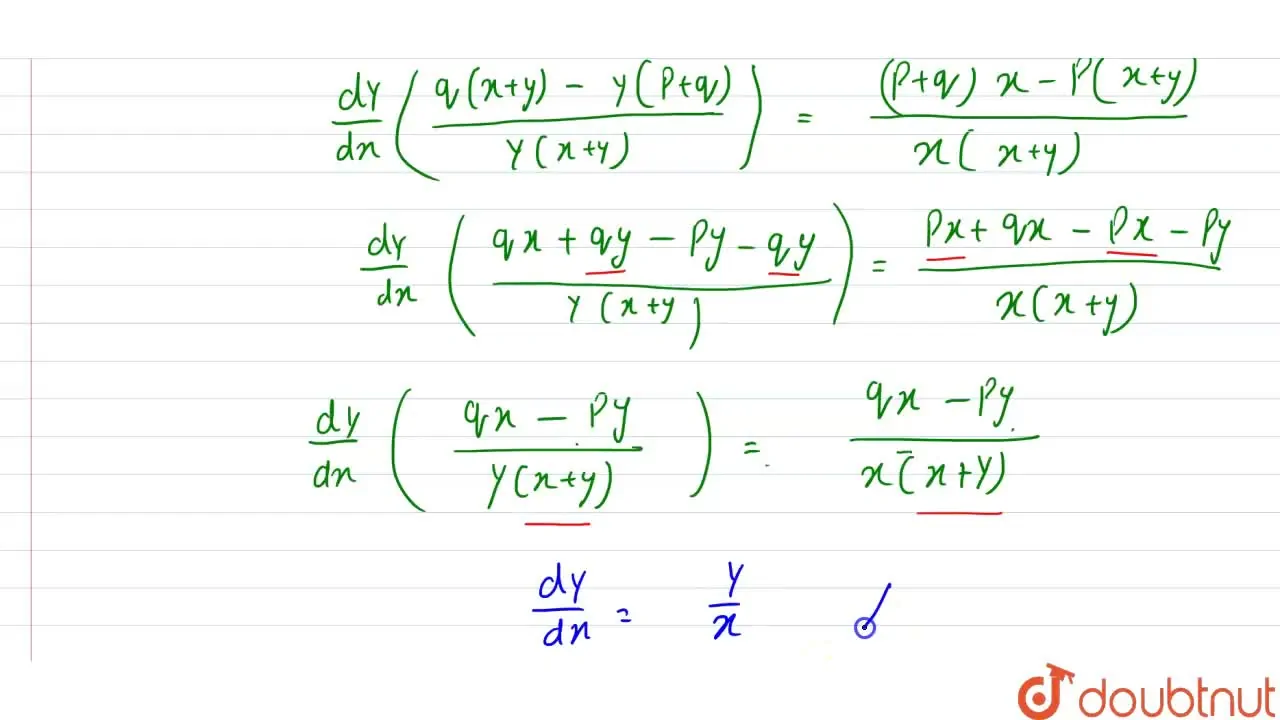 dy/dx ( (q(x+y) - y(P+q)) / (y(x+y)) ) = ((P+q) x - P(x+y)) / (x(x+y))
dy/dx ( (qx + qy - Py - qy) / (y(x+y)) ) = (Px + qx - Px - Py) / (x(x+y))
dy/dx ( (qx - Py) / (y(x+y)) ) = (qx - Py) / (x(x+y))
dy/dx = y/x
doubtnut